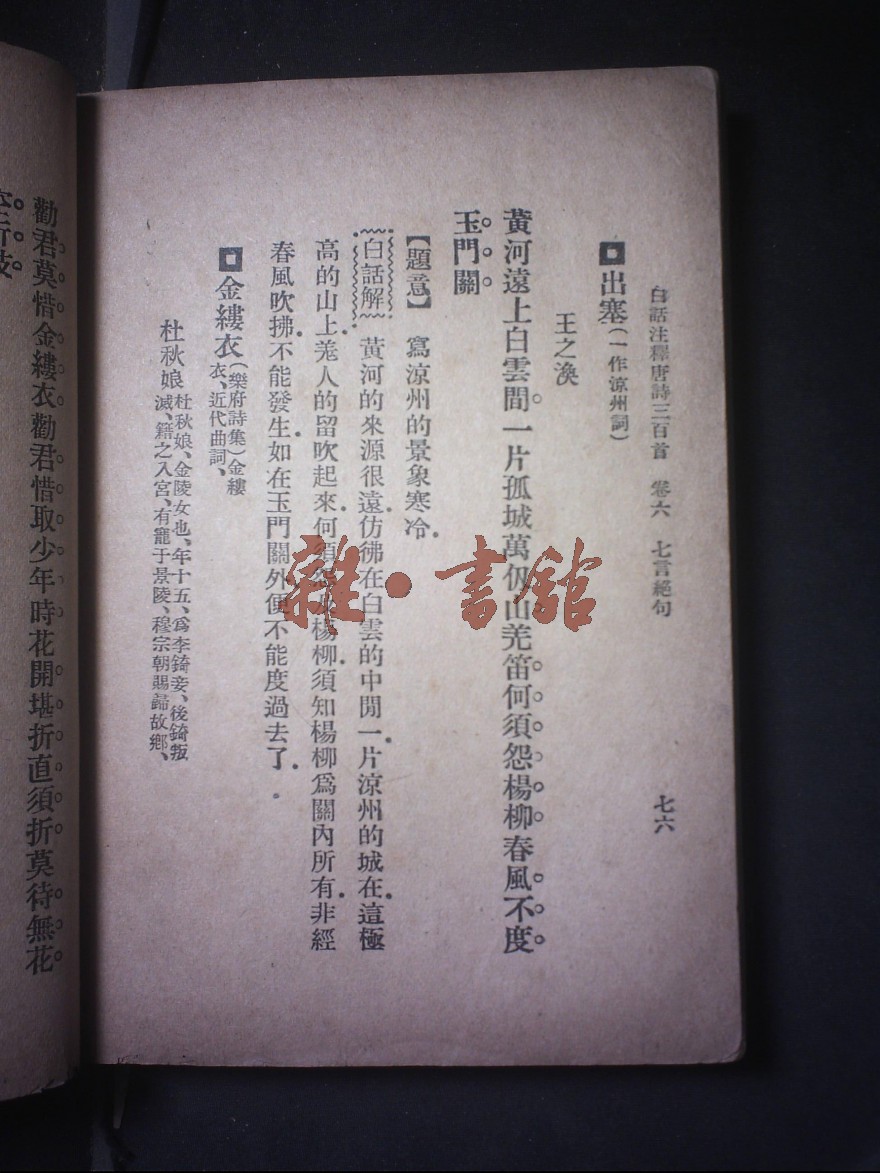 白話注釋唐詩三百首 卷六 七言絕句 七六
出塞(一作涼州詞)
王之渙
黃河遠上白雲間一片孤城萬仞山羌笛何須怨楊柳春風不度
玉門關
【題意】 寫涼州的景象寒冷
白話解 黃河的來源很遠仿彿在白雲的中閒一片涼州的城在這極
高的山上羌人的留吹起來何須怨及楊柳須知楊柳爲關內所有非經
春風吹拂不能發生如在玉門關外便不能度過去了
金縷衣(樂府詩集)金縷
衣、近代曲詞、
杜秋娘 杜秋娘、金陵女也、年十五、爲李錡妾、後錡叛
滅、籍之入宮、有寵于景陵、穆宗朝賜歸故鄉、
勸君莫惜金縷衣勸君惜取少年時花開堪折直須折莫待無花
空折枝
雜·書館